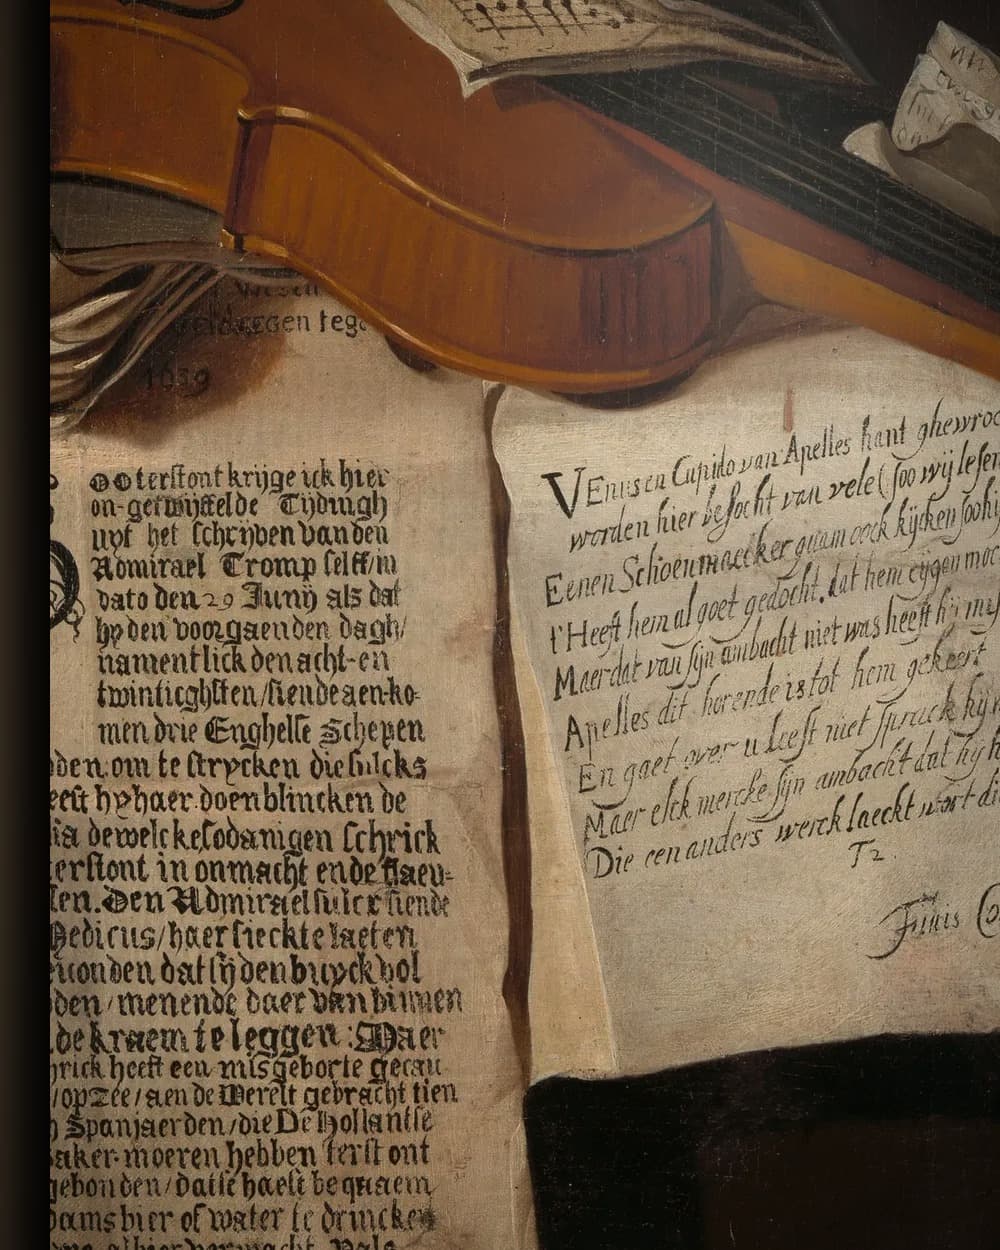 tege
1659
oo terstont krijge ick hier
on-getwijffelde Tijdingh
uyt het schrijven van den
Admirael Tromp selff/in
dato den 29 Junij als dat
hy den voorgaenden dagh/
namentlick den acht-en
twinticghsten/siende aen-ko-
men drie Enghelse Schepen
den om te strycken die sulcks
hy haer doen blincken de
dewelcke sodanigen schrick
terstont in onmacht ende flaeu-
len. Den Admirael sulcx siende
Medicus/haer sieckte laeten
vonden dat sy den buyck vol
den/menende daer van binnen
de kraem te leggen: Maer
heeft een misgeborte
/op Zee/aen de Werelt gebracht tien
Spanjaerden/die De Hollantse
baker-moeren hebben terstont
gebonden/datse haest bequaem
bier of water te drincken
VEnus en Cupido van Apelles hant
worden hier besocht van vele (soo wij lesen
Eenen Schoenmaecker quam oock kijcken
t'Heeft hem al goet gedocht, dat hem eijgen
Maer dat van sijn ambacht niet was heeft hij
Apelles dit horende is tot hem gekeert
En gaet over u leest niet sprack hij
Maer elck mercke sijn ambacht dat hij
Die een anders werck laeckt wort
T2
Finis